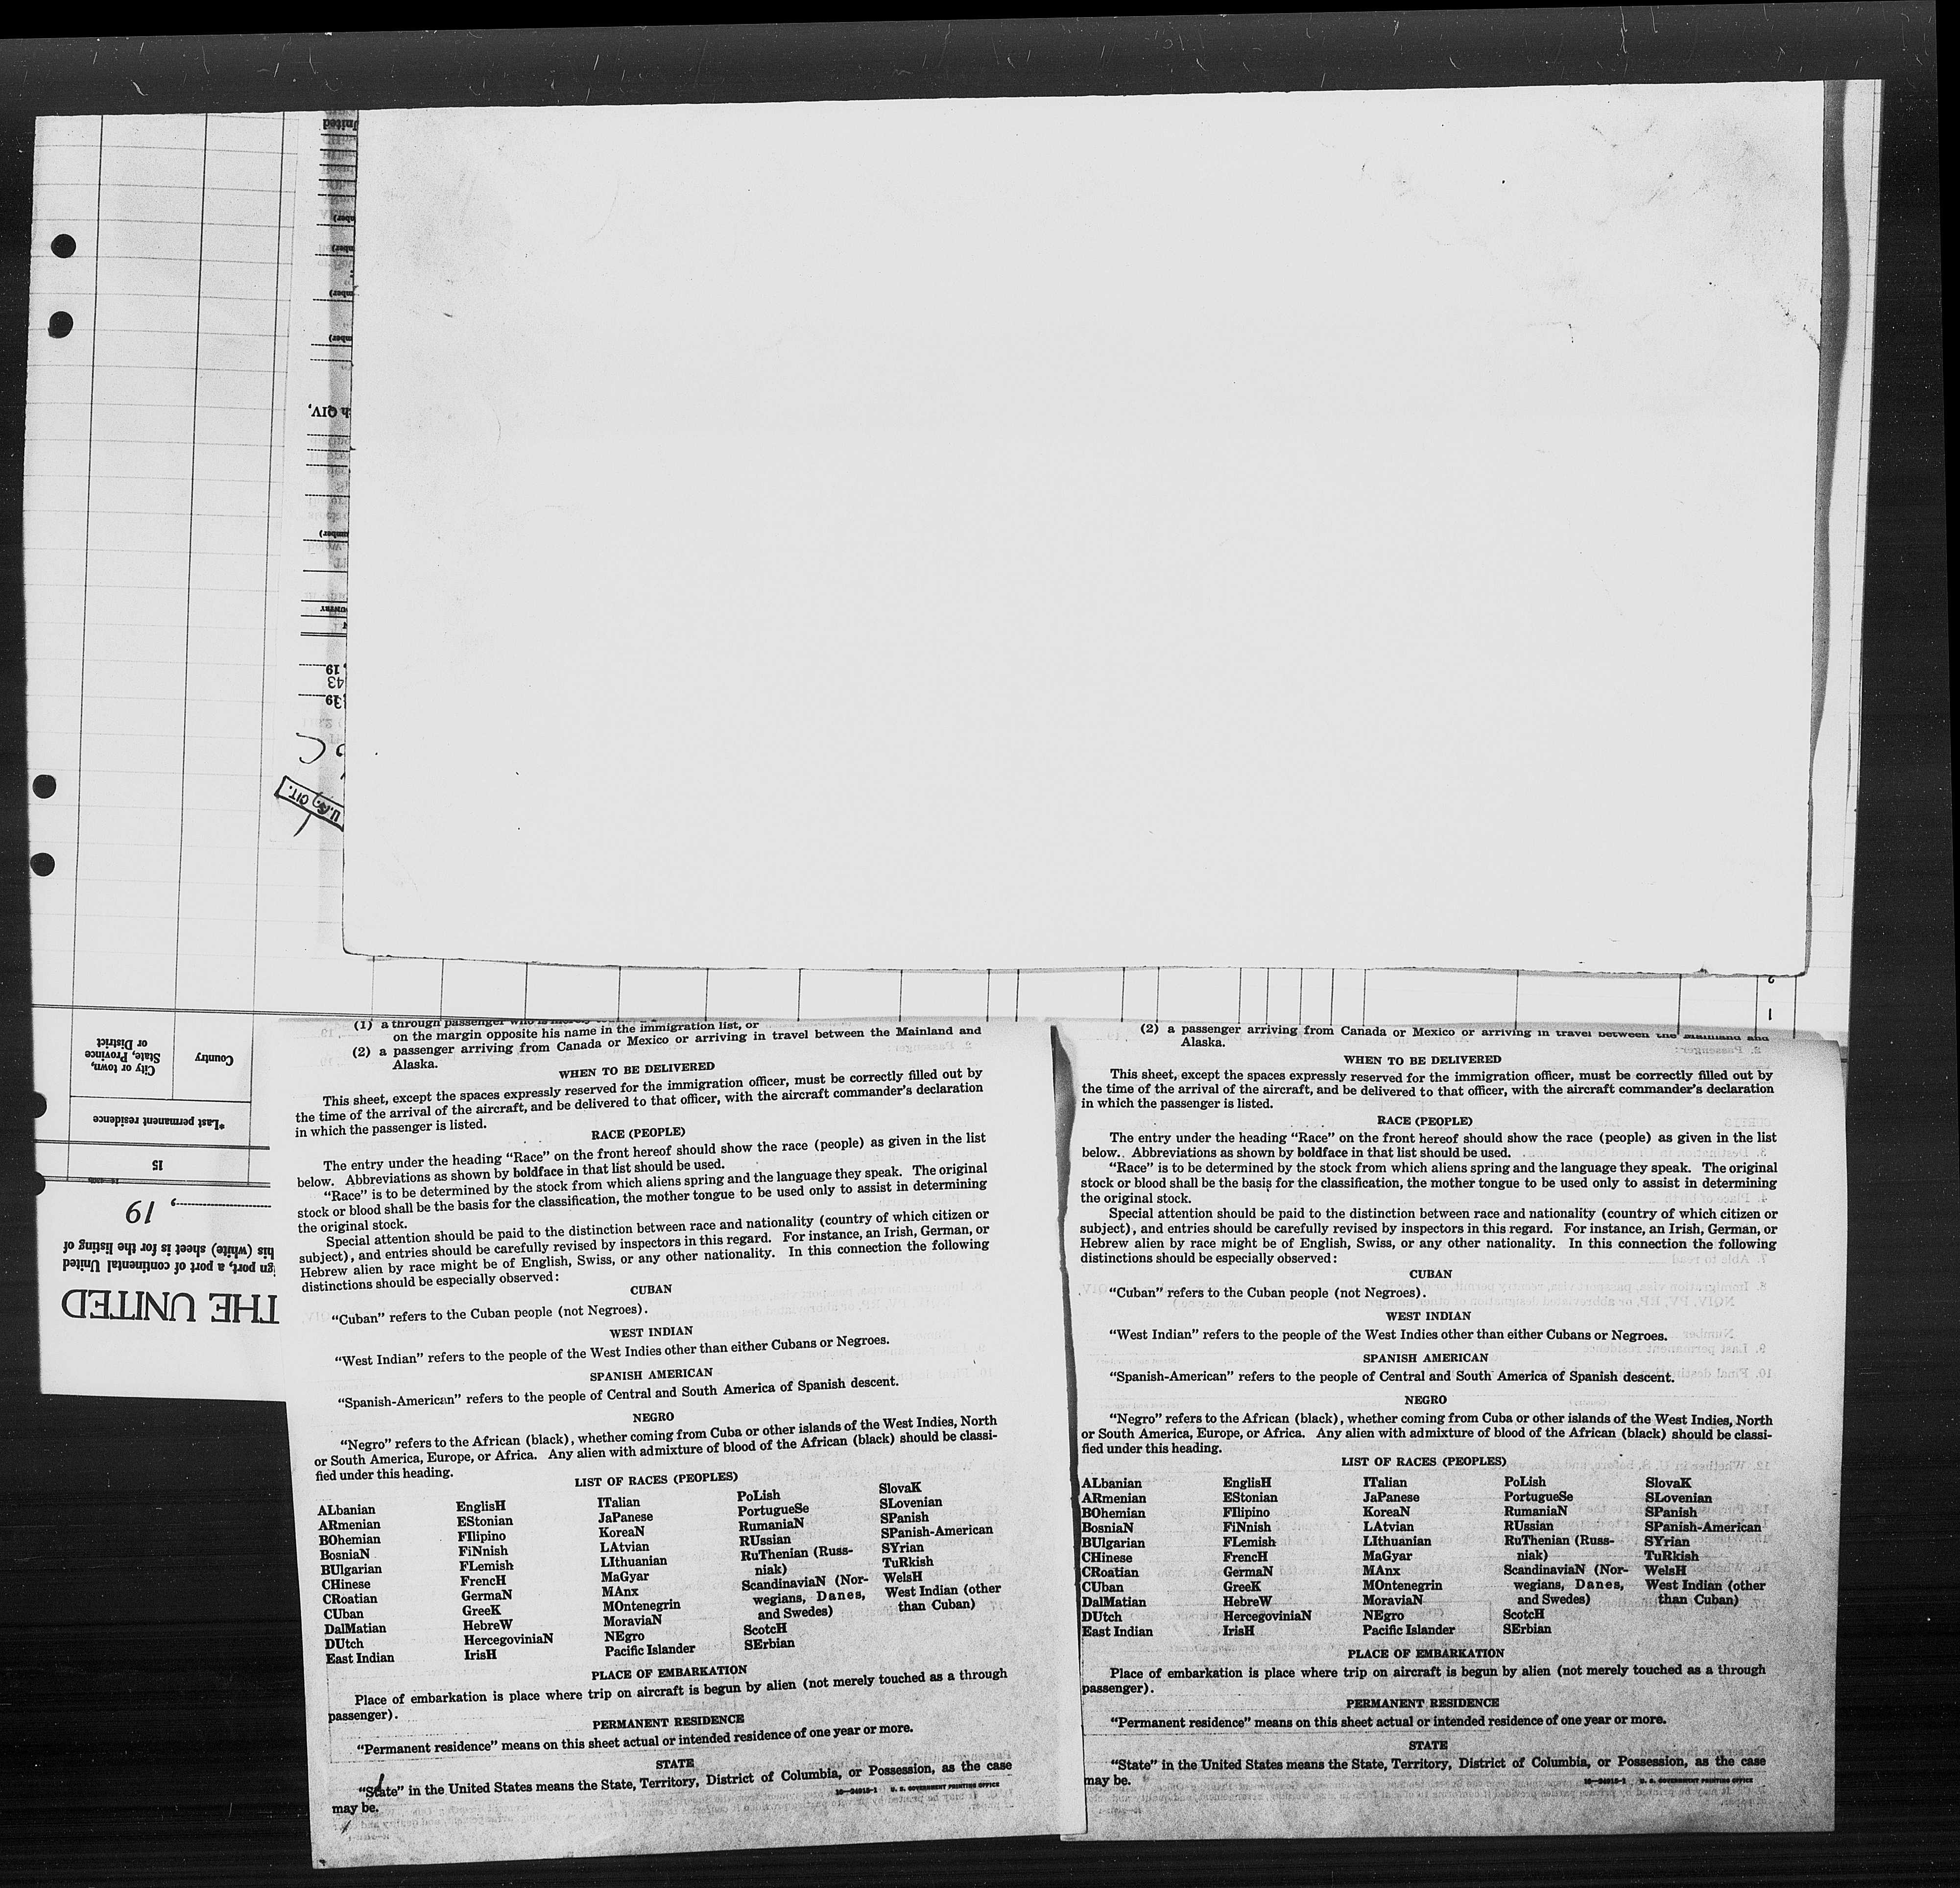 (1) a through passenger who is merely
on the margin opposite his name in the immigration list, or
(2) a passenger arriving from Canada or Mexico or arriving in travel between the Mainland and
Alaska.
WHEN TO BE DELIVERED
This sheet, except the spaces expressly reserved for the immigration officer, must be correctly filled out by
the time of the arrival of the aircraft, and be delivered to that officer, with the aircraft commander's declaration
in which the passenger is listed.
RACE (PEOPLE)
The entry under the heading "Race" on the front hereof should show the race (people) as given in the list
below. Abbreviations as shown by boldface in that list should be used.
"Race" is to be determined by the stock from which aliens spring and the language they speak. The original
stock or blood shall be the basis for the classification, the mother tongue to be used only to assist in determining
the original stock.
Special attention should be paid to the distinction between race and nationality (country of which citizen or
subject), and entries should be carefully revised by inspectors in this regard. For instance, an Irish, German, or
Hebrew alien by race might be of English, Swiss, or any other nationality. In this connection the following
distinctions should be especially observed:
CUBAN
"Cuban" refers to the Cuban people (not Negroes).
WEST INDIAN
"West Indian" refers to the people of the West Indies other than either Cubans or Negroes.
SPANISH AMERICAN
"Spanish-American" refers to the people of Central and South America of Spanish descent.
NEGRO
"Negro" refers to the African (black), whether coming from Cuba or other islands of the West Indies, North
or South America, Europe, or Africa. Any alien with admixture of blood of the African (black) should be classi-
fied under this heading.
LIST OF RACES (PEOPLES)
ALbanian
ARmenian
BOhemian
BosniaN
BUlgarian
CHinese
CRoatian
CUban
DalMatian
DUtch
East Indian
EnglisH
EStonian
FIlipino
FiNnish
FLemish
FrencH
GermaN
GreeK
HebreW
HercegoviniaN
IrisH
ITalian
JaPanese
KoreaN
LAtvian
LIthuanian
MaGyar
MAnx
MOntenegrin
MoraviaN
NEgro
Pacific Islander
PoLish
PortugueSe
RumaniaN
RUssian
RuThenian (Russ-
niak)
ScandinaviaN (Nor-
wegians, Danes,
and Swedes)
ScotcH
SErbian
SlovaK
SLovenian
SPanish
SPanish-American
SYrian
TuRkish
WelsH
West Indian (other
than Cuban)
PLACE OF EMBARKATION
Place of embarkation is place where trip on aircraft is begun by alien (not merely touched as a through
passenger).
PERMANENT RESIDENCE
"Permanent residence" means on this sheet actual or intended residence of one year or more.
STATE
"State" in the United States means the State, Territory, District of Columbia, or Possession, as the case
may be.
16—24915-1 U. S. GOVERNMENT PRINTING OFFICE
(2) a passenger arriving from Canada or Mexico or arriving in travel between the Mainland and
Alaska.
WHEN TO BE DELIVERED
This sheet, except the spaces expressly reserved for the immigration officer, must be correctly filled out by
the time of the arrival of the aircraft, and be delivered to that officer, with the aircraft commander's declaration
in which the passenger is listed.
RACE (PEOPLE)
The entry under the heading "Race" on the front hereof should show the race (people) as given in the list
below. Abbreviations as shown by boldface in that list should be used.
"Race" is to be determined by the stock from which aliens spring and the language they speak. The original
stock or blood shall be the basis for the classification, the mother tongue to be used only to assist in determining
the original stock.
Special attention should be paid to the distinction between race and nationality (country of which citizen or
subject), and entries should be carefully revised by inspectors in this regard. For instance, an Irish, German, or
Hebrew alien by race might be of English, Swiss, or any other nationality. In this connection the following
distinctions should be especially observed:
CUBAN
"Cuban" refers to the Cuban people (not Negroes).
WEST INDIAN
"West Indian" refers to the people of the West Indies other than either Cubans or Negroes.
SPANISH AMERICAN
"Spanish-American" refers to the people of Central and South America of Spanish descent.
NEGRO
"Negro" refers to the African (black), whether coming from Cuba or other islands of the West Indies, North
or South America, Europe, or Africa. Any alien with admixture of blood of the African (black) should be classi-
fied under this heading.
LIST OF RACES (PEOPLES)
ALbanian
ARmenian
BOhemian
BosniaN
BUlgarian
CHinese
CRoatian
CUban
DalMatian
DUtch
East Indian
EnglisH
EStonian
FIlipino
FiNnish
FLemish
FrencH
GermaN
GreeK
HebreW
HercegoviniaN
IrisH
ITalian
JaPanese
KoreaN
LAtvian
LIthuanian
MaGyar
MAnx
MOntenegrin
MoraviaN
NEgro
Pacific Islander
PoLish
PortugueSe
RumaniaN
RUssian
RuThenian (Russ-
niak)
ScandinaviaN (Nor-
wegians, Danes,
and Swedes)
ScotcH
SErbian
SlovaK
SLovenian
SPanish
SPanish-American
SYrian
TuRkish
WelsH
West Indian (other
than Cuban)
PLACE OF EMBARKATION
Place of embarkation is place where trip on aircraft is begun by alien (not merely touched as a through
passenger).
PERMANENT RESIDENCE
"Permanent residence" means on this sheet actual or intended residence of one year or more.
STATE
"State" in the United States means the State, Territory, District of Columbia, or Possession, as the case
may be.
16—24915-1 U. S. GOVERNMENT PRINTING OFFICE
THE UNITED
gn port, a port of continental United
his (white) sheet is for the listing of
, 19
15
*Last permanent residence
Country
City or town,
State, Province
or District
1
2
U.S. CIT.
, 19
43
, 19
h QIV,
United